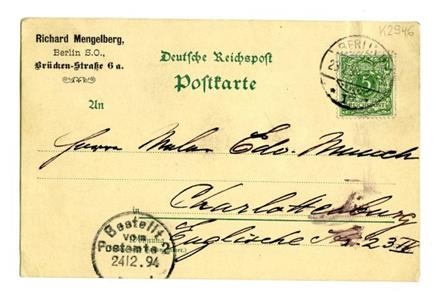 K2946
Richard Mengelberg,
Berlin S.O.,
Brücken-Straße 6a.
Deutsche Reichspost
Postkarte
BERLIN
5
An
Herrn Maler Edv. Munch
in Charlottenburg
Englische Str. 23 IV
Bestellt
vom
Postamte 2
24|2.94